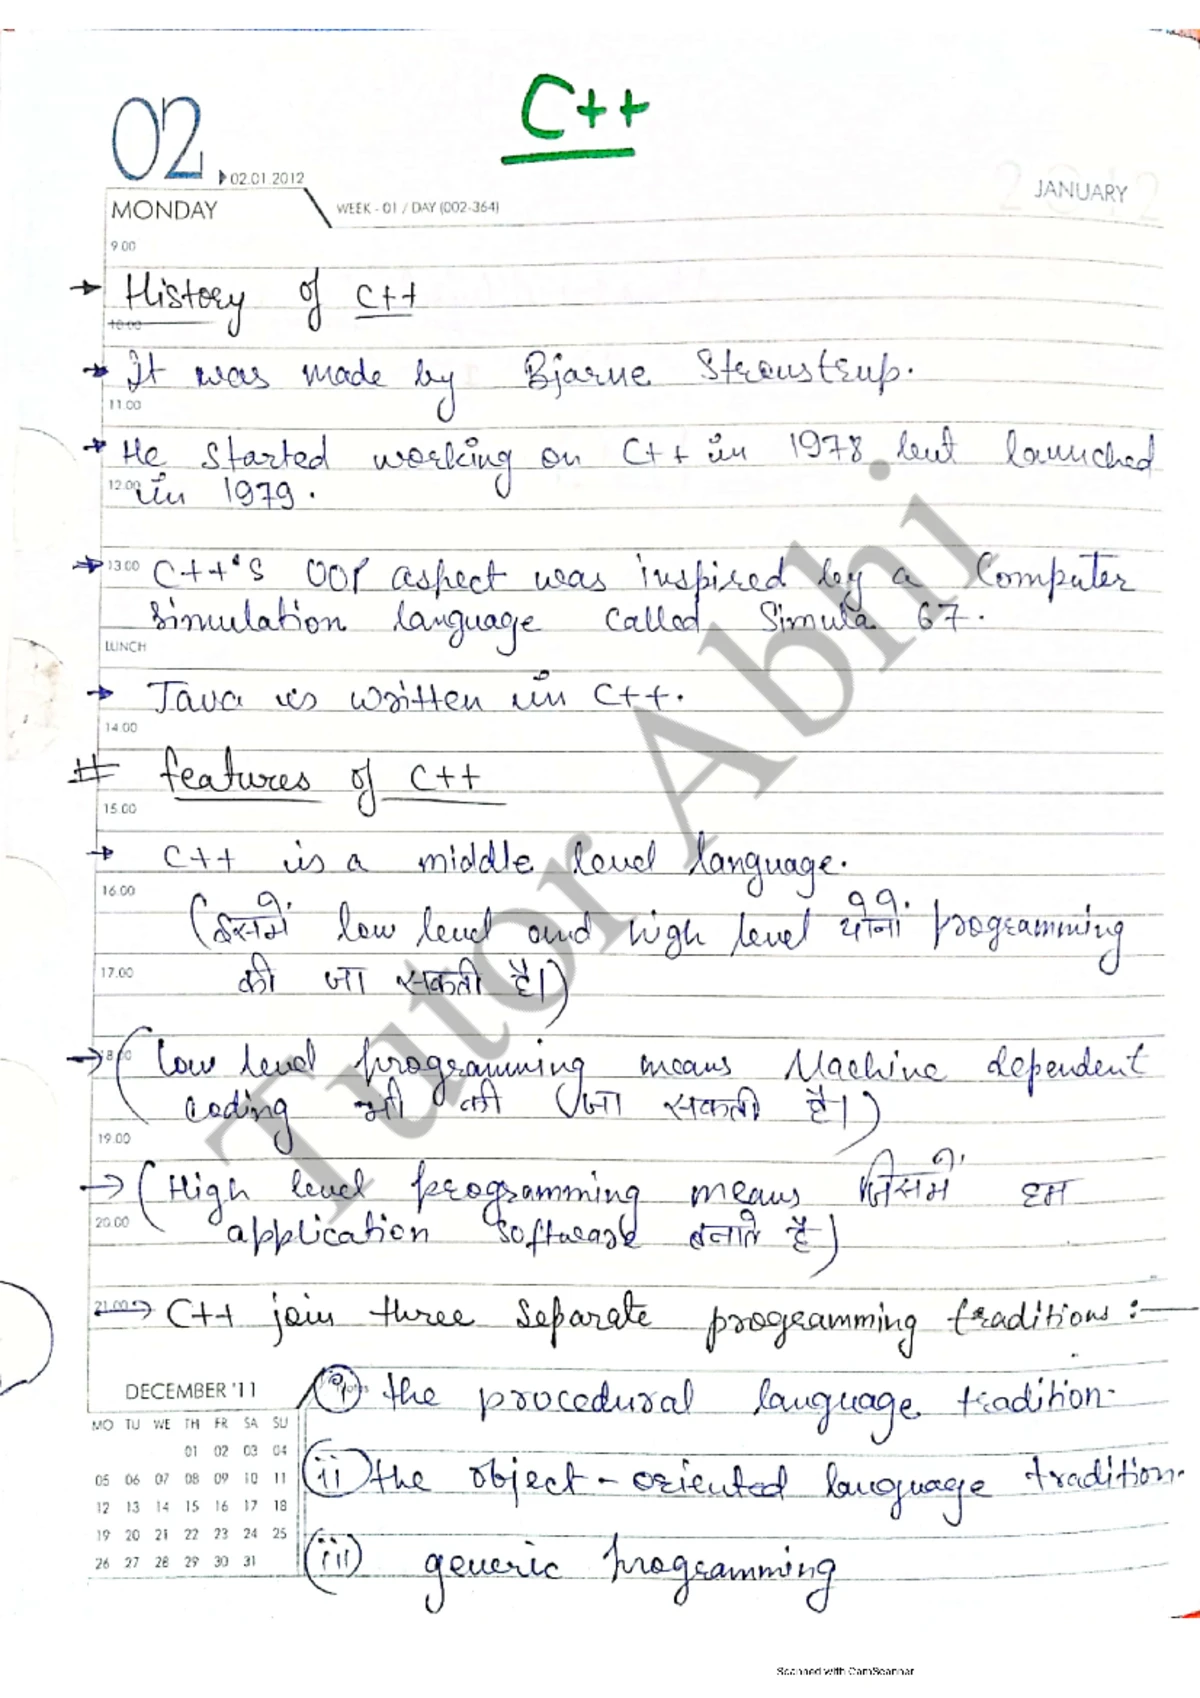 C++
02
02.01.2012
MONDAY
WEEK - 01 / DAY (002-364)
JANUARY
2012
9.00
→ History of C++
10.00
→ It was made by Bjarne Stroustrup.
11.00
→ He started working on C++ in 1978 but launched
12.00 in 1979.
→ 13.00 C++'s OOP aspect was inspired by a Computer
simulation language called Simula 67.
LUNCH
→ Java is written in C++.
14.00
# features of C++
15.00
→ C++ is a middle level language.
16.00
(इसमें low level and high level दोनों programming
17.00 की जा सकती है।)
→ 18.00 (low level programming means Machine dependent
coding भी की जा सकती है।)
19.00
→ (High level programming means जिसमें हम
20.00 application software बनाते है)
21.00 → C++ join three separate programming traditions :—
(i) the procedural language tradition.
(ii) the object-oriented language tradition.
(iii) generic programming
DECEMBER '11
MO TU WE TH FR SA SU
01 02 03 04
05 06 07 08 09 10 11
12 13 14 15 16 17 18
19 20 21 22 23 24 25
26 27 28 29 30 31
Tutor Abhi
Scanned with CamScanner